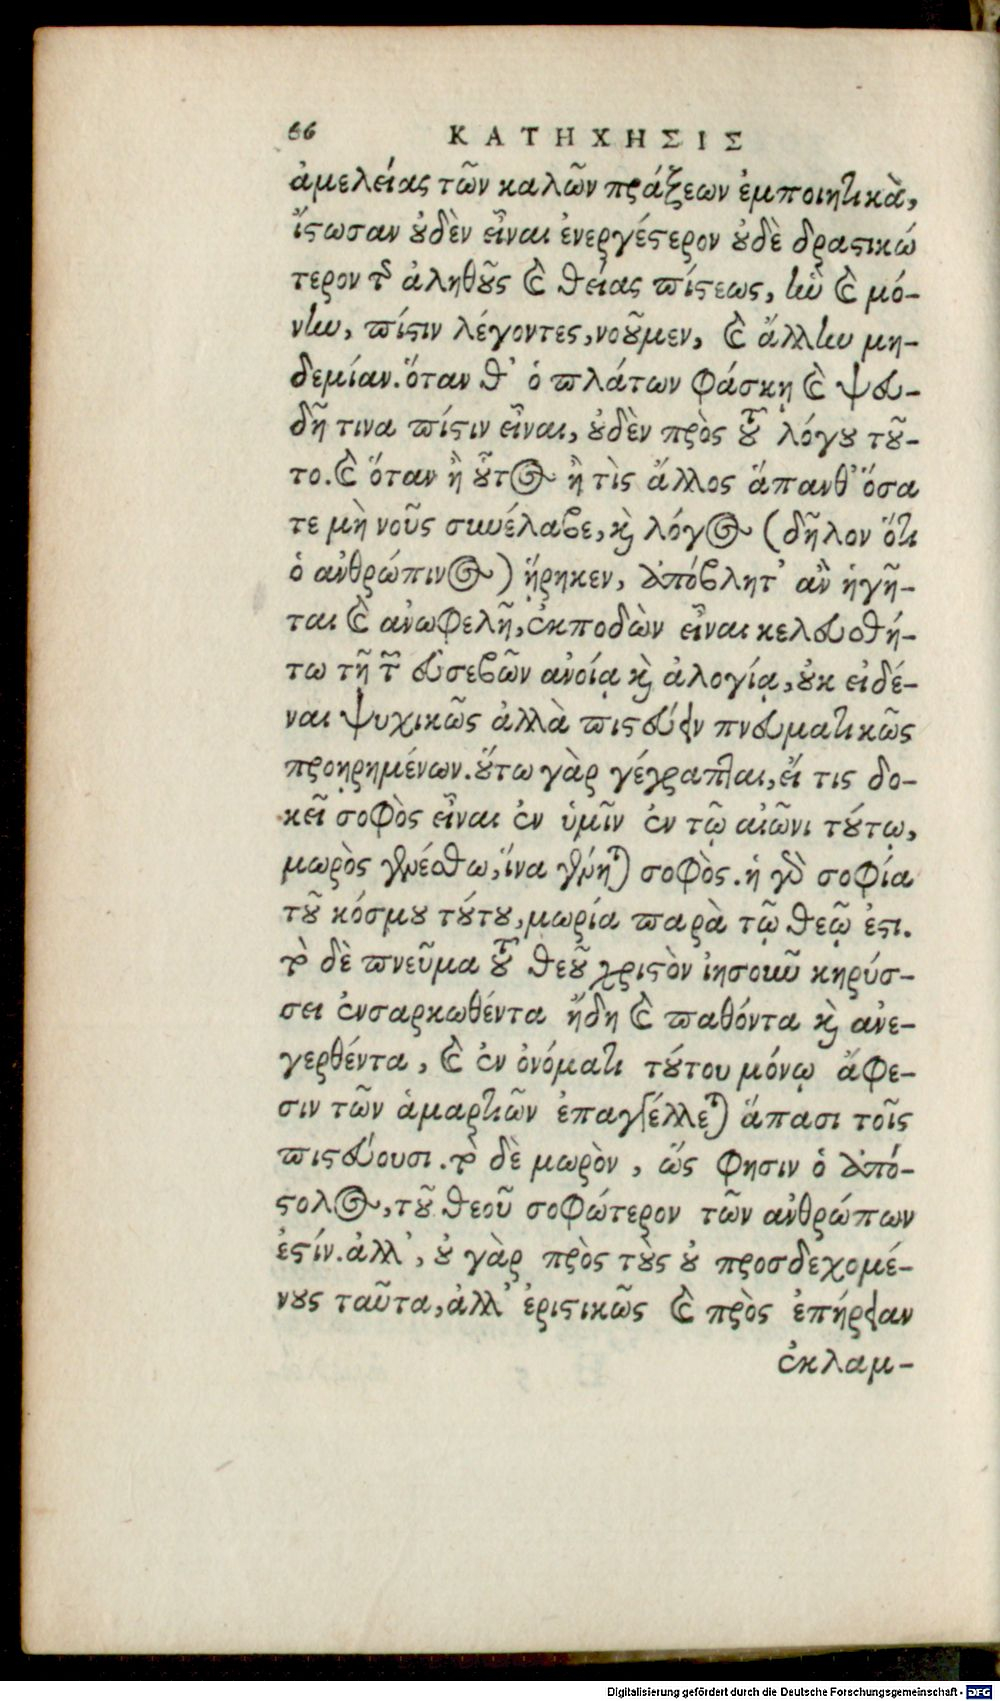 66 ΚΑΤΗΧΗΣΙΣ
ἀμελείας τῶν καλῶν πράξεων ἐμποιητικὰ,
ἴστωσαν οὐδὲν εἶναι ἐνεργέστερον οὐδὲ δραστικώ
τερον τῆς ἀληθοῦς καὶ θείας πίστεως, ἣν καὶ μό-
νην, πίστιν λέγοντες, νοοῦμεν, καὶ ἄλλην μη-
δεμίαν. ὅταν θ' ὁ πλάτων φάσκῃ καὶ ψευ-
δῆ τινα πίστιν εἶναι, οὐδὲν πρὸς τοῦ λόγου τοῦ-
το. καὶ ὅταν ἢ οὗτος ἢ τὶς ἄλλος ἅπανθ' ὅσα
τε μὴ νοῦς συνέλαβε, καὶ λόγος (δῆλον ὅτι
ὁ ἀνθρώπινος) ᾕρηκεν, ἀπόβλητ' ἂν ἡγῆ-
ται καὶ ἀνωφελῆ, ἐκποδὼν εἶναι κελευσθή-
τω τῇ τῶν εὐσεβῶν ἀνοίᾳ καὶ ἀλογίᾳ, οὐκ εἰδέ-
ναι ψυχικῶς ἀλλὰ πιστεύειν πνευματικῶς
προῃρημένων. οὕτω γὰρ γέγραπται, εἴ τις δο-
κεῖ σοφὸς εἶναι ἐν ὑμῖν ἐν τῷ αἰῶνι τούτῳ,
μωρὸς γενέσθω, ἵνα γένηται σοφὸς. ἡ γὰρ σοφία
τοῦ κόσμου τούτου, μωρία παρὰ τῷ θεῷ ἐστι.
τὸ δὲ πνεῦμα τοῦ θεοῦ χριστὸν ἰησοῦν κηρύσ-
σει ἐνσαρκωθέντα ἤδη καὶ παθόντα καὶ ἀνε-
γερθέντα, καὶ ἐν ὀνόματι τούτου μόνῳ ἄφε-
σιν τῶν ἁμαρτιῶν ἐπαγγέλλεται ἅπασι τοῖς
πιστεύουσι. τὸ δὲ μωρὸν, ὥς φησιν ὁ ἀπό-
στολος, τοῦ θεοῦ σοφώτερον τῶν ἀνθρώπων
ἐστίν. ἀλλ', οὐ γὰρ πρὸς τοὺς οὐ προσδεχομέ-
νους ταῦτα, ἀλλ' ἐριστικῶς καὶ πρὸς ἐπήρειαν
ἐκλαμ-
Digitalisierung gefördert durch die Deutsche Forschungsgemeinschaft - DFG